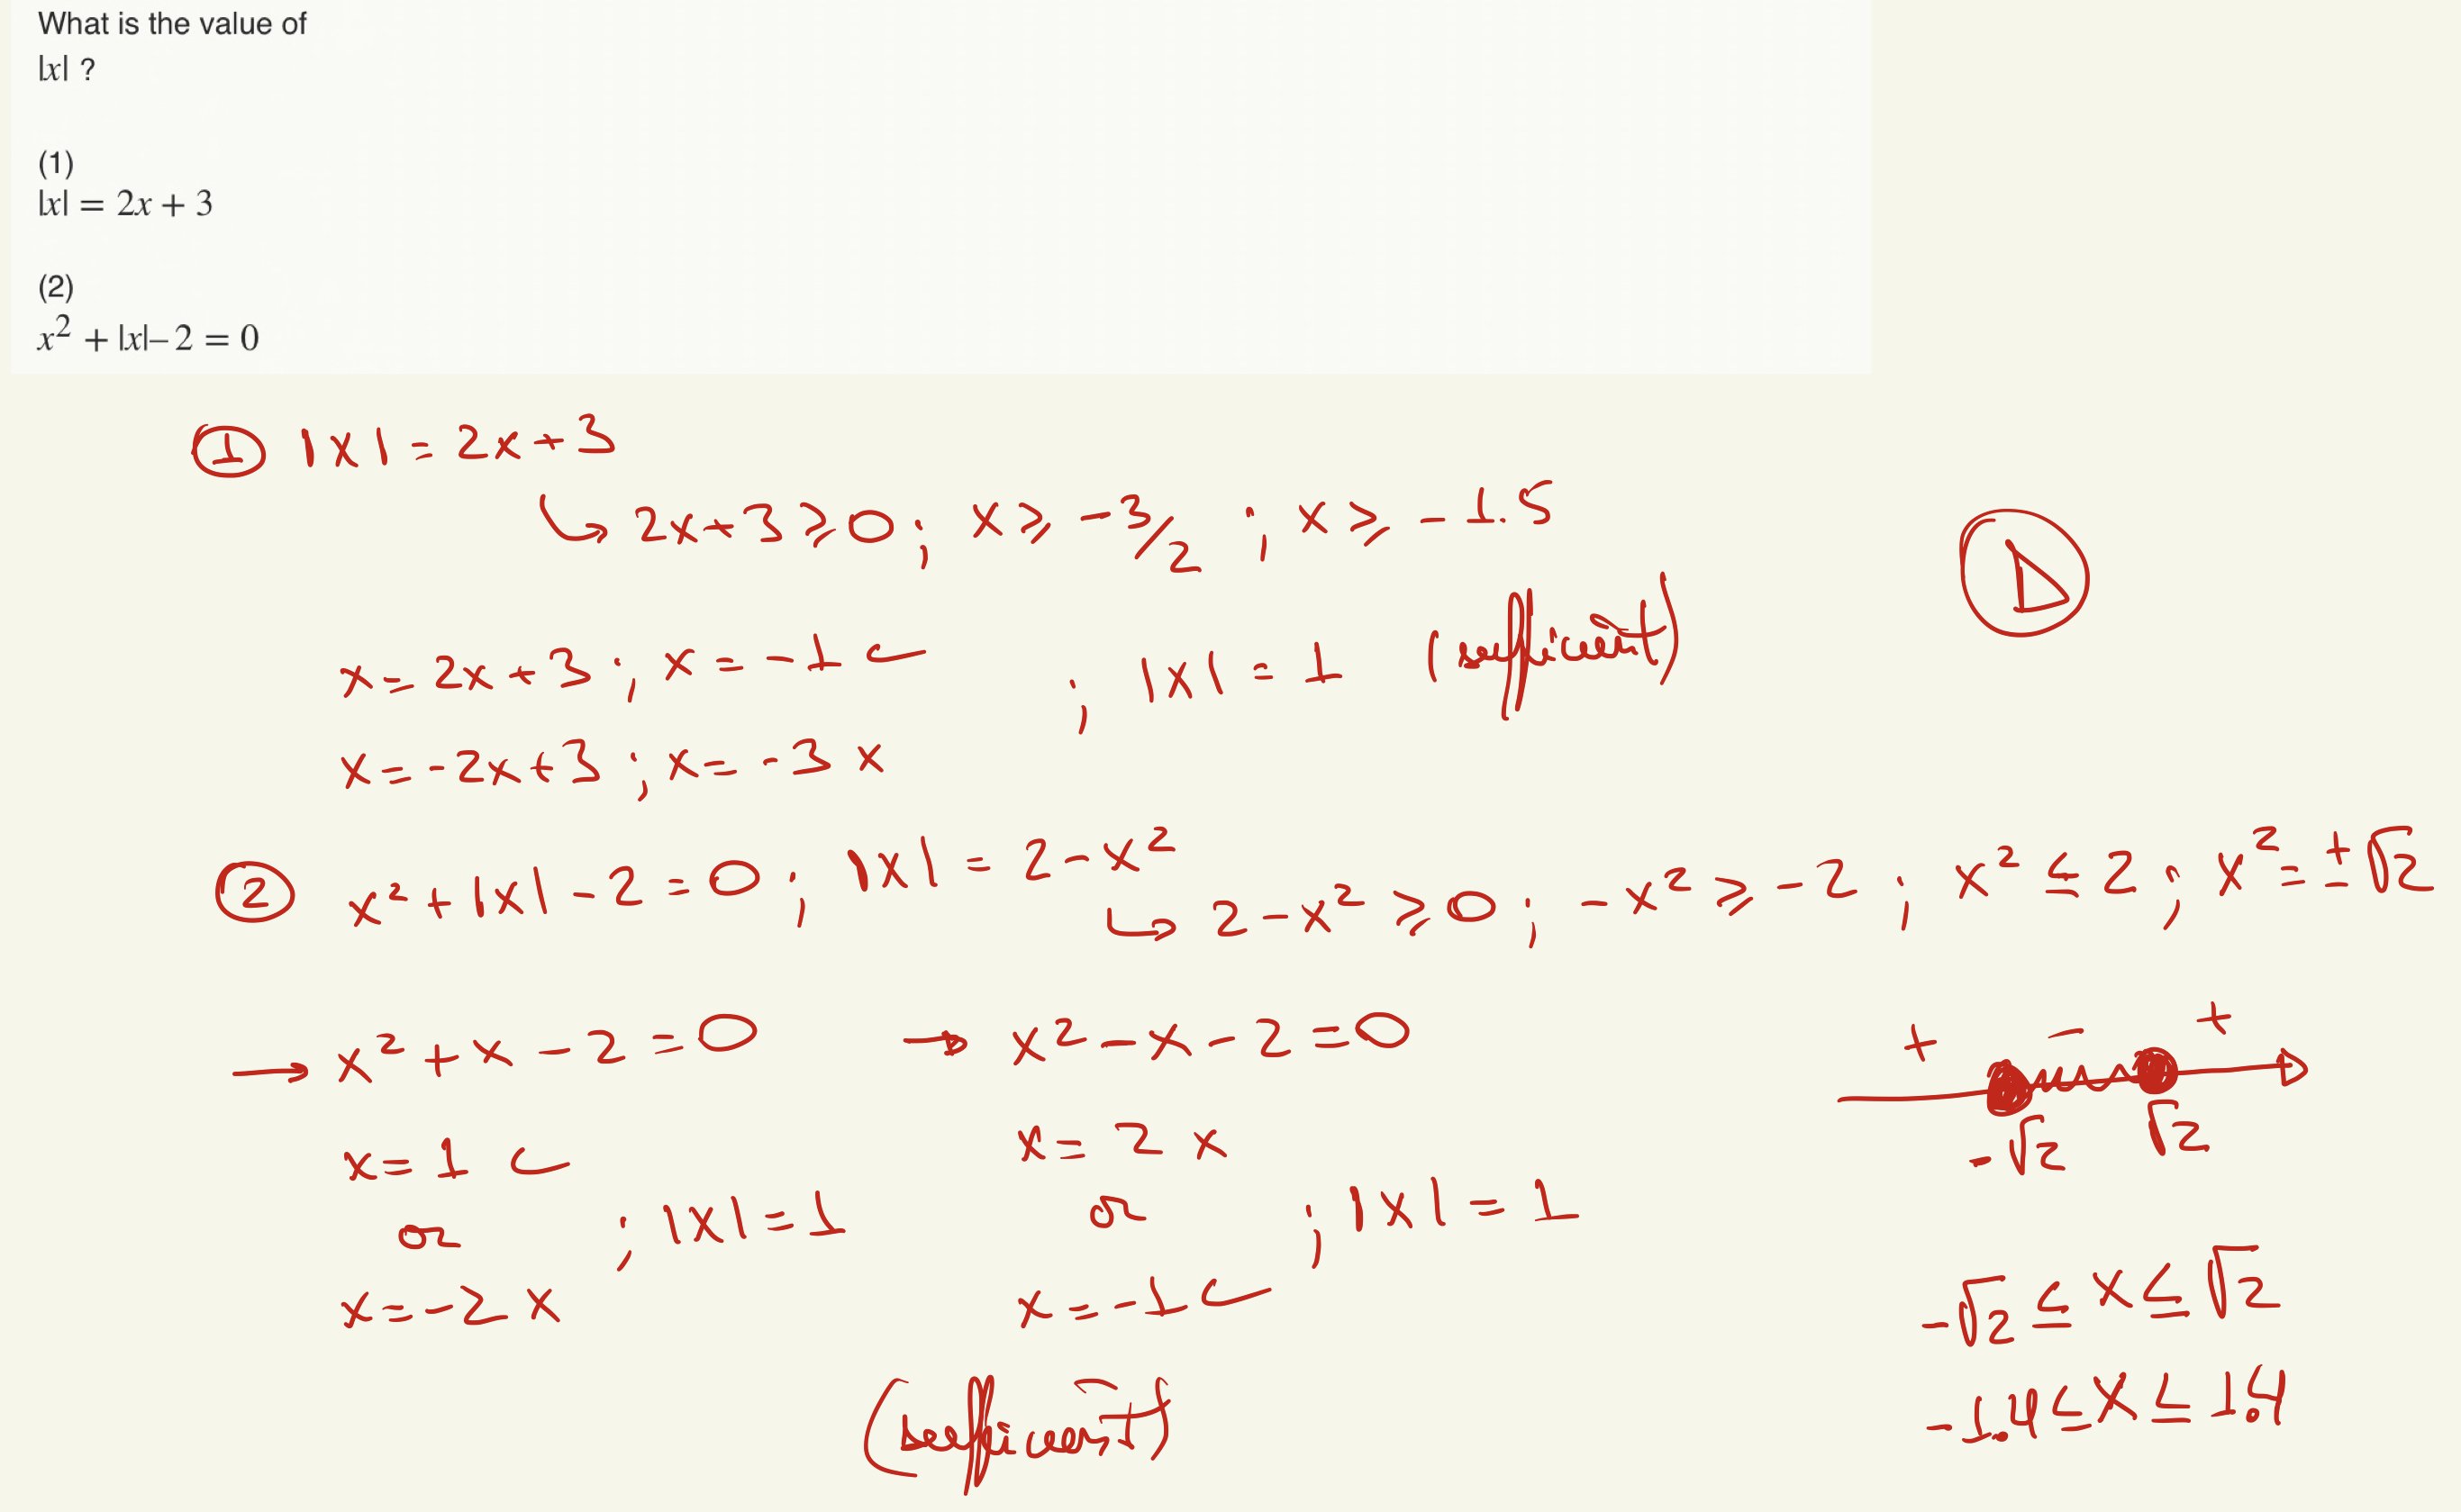 What is the value of
|x| ?
(1)
|x| = 2x + 3
(2)
x² + |x|– 2 = 0
① |x| = 2x+3
↳ 2x+3 ⩾ 0 ; x ⩾ -3/2 ; x ⩾ -1.5
D
x = 2x+3 ; x = -1 ✓ ; |x| = 1 (sufficient)
x = -2x+3 ; x = -3 x
② x² + |x| - 2 = 0 ; |x| = 2-x²
↳ 2-x² ⩾ 0 ; -x² ⩾ -2 ; x² ≤ 2 ; x² = ±√2
→ x² + x - 2 = 0
x = 1 ✓
or ; |x| = 1
x = -2 x
→ x² - x - 2 = 0
x = 2 x
or ; |x| = 1
x = -1 ✓
(sufficient)
+ - +
-√2 √2
-√2 ≤ x ≤ √2
-1.4 ≤ x ≤ 1.4